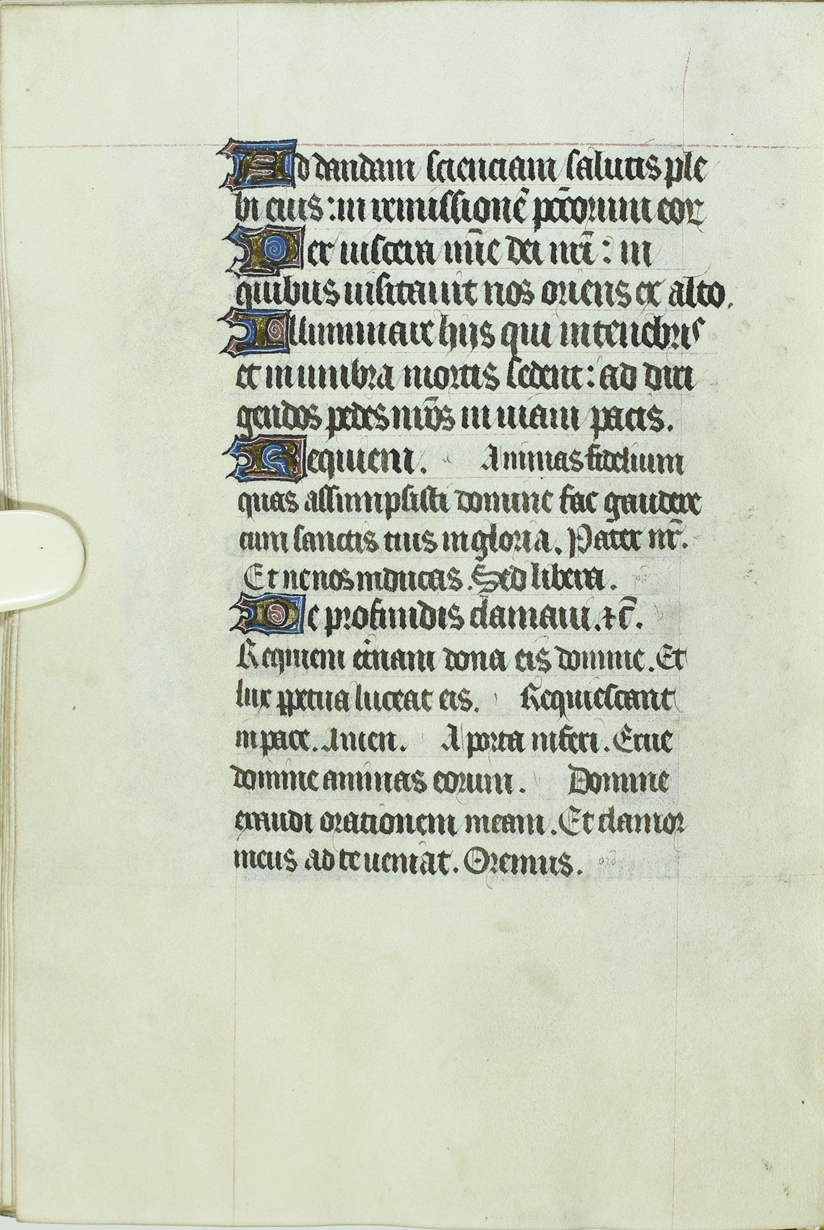 Ad dandam scienciam salutis ple
bi eius : in remissionē pc̄torum eoꝝ
Per uiscera mīe dei nr̄i : in
quibus uisitauit nos oriens ex alto.
Illuminare hijs qui in tenebris
et in umbra mortis sedent : ad diri
gendos pedes nr̄os in uiam pacis.
Requiem. Animas fidelium
quas assumpsisti domine fac gaudere
cum sanctis tuis in gloria. Pater nr̄.
Et ne nos inducas. Sed libera.
De profundis clamaui. ⁊ c̄.
Requiem et̄nam dona eis domine. Et
lux ꝑpetua luceat eis. Requiescant
in pace. Amen. A porta inferi. Erue
domine animas eorum. Domine
exaudi orationem meam. Et clamor
meus ad te ueniat. Oremus. oro̅